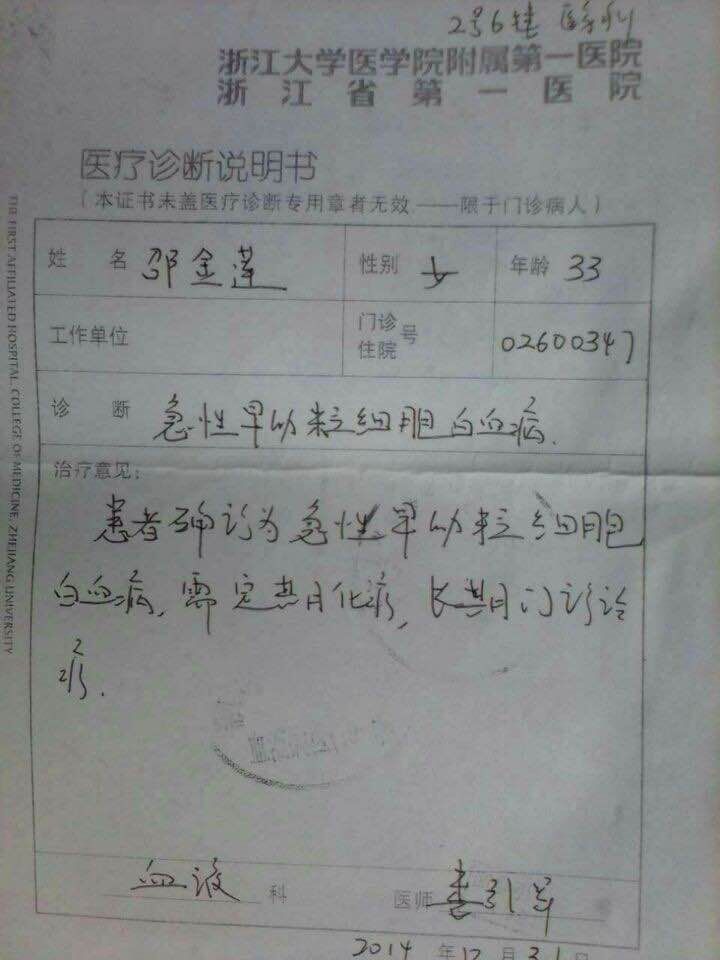 2号6楼 医务科
浙江大学医学院附属第一医院
浙江省第一医院
医疗诊断说明书
（本证书未盖医疗诊断专用章者无效——限于门诊病人）
姓 名 邵金莲 性别 女 年龄 33
工作单位 门诊住院号 02600347
诊 断 急性早幼粒细胞白血病.
治疗意见：
患者确诊为急性早幼粒细胞
白血病，需定期化疗，长期门诊治
疗.
血液 科 医师 娄引军
2014 年 12 月 31 日
THE FIRST AFFILIATED HOSPITAL, COLLEGE OF MEDICINE, ZHEJIANG UNIVERSITY